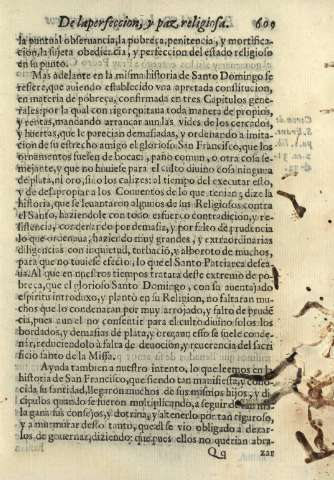 De la perfeccion, y paz religiosa. 609
la puntual obseruancia, la pobreza, penitencia, y mortifica-
cion, la sujeta obediencia, y perfeccion del estado religioso
en su punto.
Mas adelante en la misma historia de Santo Domingo se
refiere, que auiendo establecido vna apretada constitucion,
en materia de pobreça, confirmada en tres Capitulos gene-
rales: por la qual con rigor quitaua toda manera de propios,
y rentas, mandando arrancar aun las vides de los cercados,
y huertas, que le parecian demasiadas, y ordenando a imita-
cion de su estrecho amigo el glorioso San Francisco, que los
ornamentos fuesen de bocaci, paño comun, o otra cosa se-
mejante, y que no huuiese para el culto diuino cosa ninguna
de plata, ni oro, sino los calizes: al tiempo del executar esto,
y de desapropiar a los Conuentos de lo que tenian; dize la
historia, que se leuantaron algunos de sus Religiosos contra
el Santo, haziendole con todo esfuerço contradicion, y re-
sistencia, condenando por demasia, y por falto de prudencia
lo que ordenaua, haziendo muy grandes, y extraordinarias
diligencias con inquietud, y alboroto de muchos,
para que no tuuiese efecto, lo que el Santo Patriarca desea-
ua. Al que en nuestros tiempos tratara deste extremo de po-
breça, que el glorioso Santo Domingo, con su auentajado
espiritu introduxo, y plantò en su Religion, no faltaran mu-
chos que lo condenaran por muy arrojado, y falto de prudē
cia, pues aun el no consentir para el culto diuino solos los
bordados, y demasias de plata, y creo aun esso se suele conde-
nar, reduciendolo a falta de deuocion, y reuerencia del sacri
ficio santo de la Missa.
Ayuda tambien a nuestro intento, lo que leemos en la
historia de San Francisco, que siendo tan manifiesta, y cono-
cida su santidad, llegaron muchos de sus mismos hijos, y di-
cipulos quando se fueron multiplicando, a seguir de tan ma-
la gana sus consejos, y dotrina, y a tenerlo por tan riguroso,
y a murmurar desso tanto, que el se vio obligado a dexar-
los de gouernar, diziendo: que pues ellos no querian abra-
Qq zar